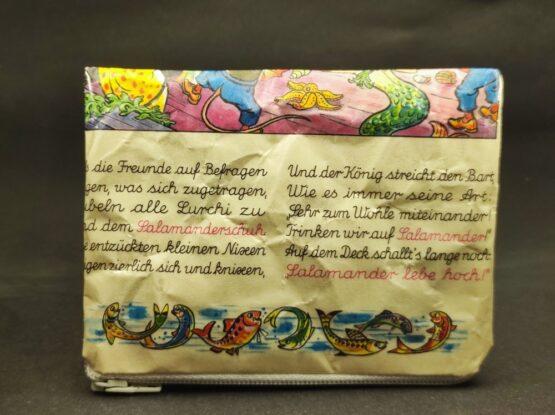 die Freunde auf Befragen
gen, was sich zugetragen,
ubeln alle Lurchi zu
d dem Salamanderschuh
e entzückten kleinen Nixen
gen zierlich sich und knixen,
Und der König streicht den Bart,
Wie es immer seine Art.
„Sehr zum Wohle miteinander!
Trinken wir auf Salamander!"
Auf dem Deck schallt's lange noch:
„Salamander lebe hoch!"